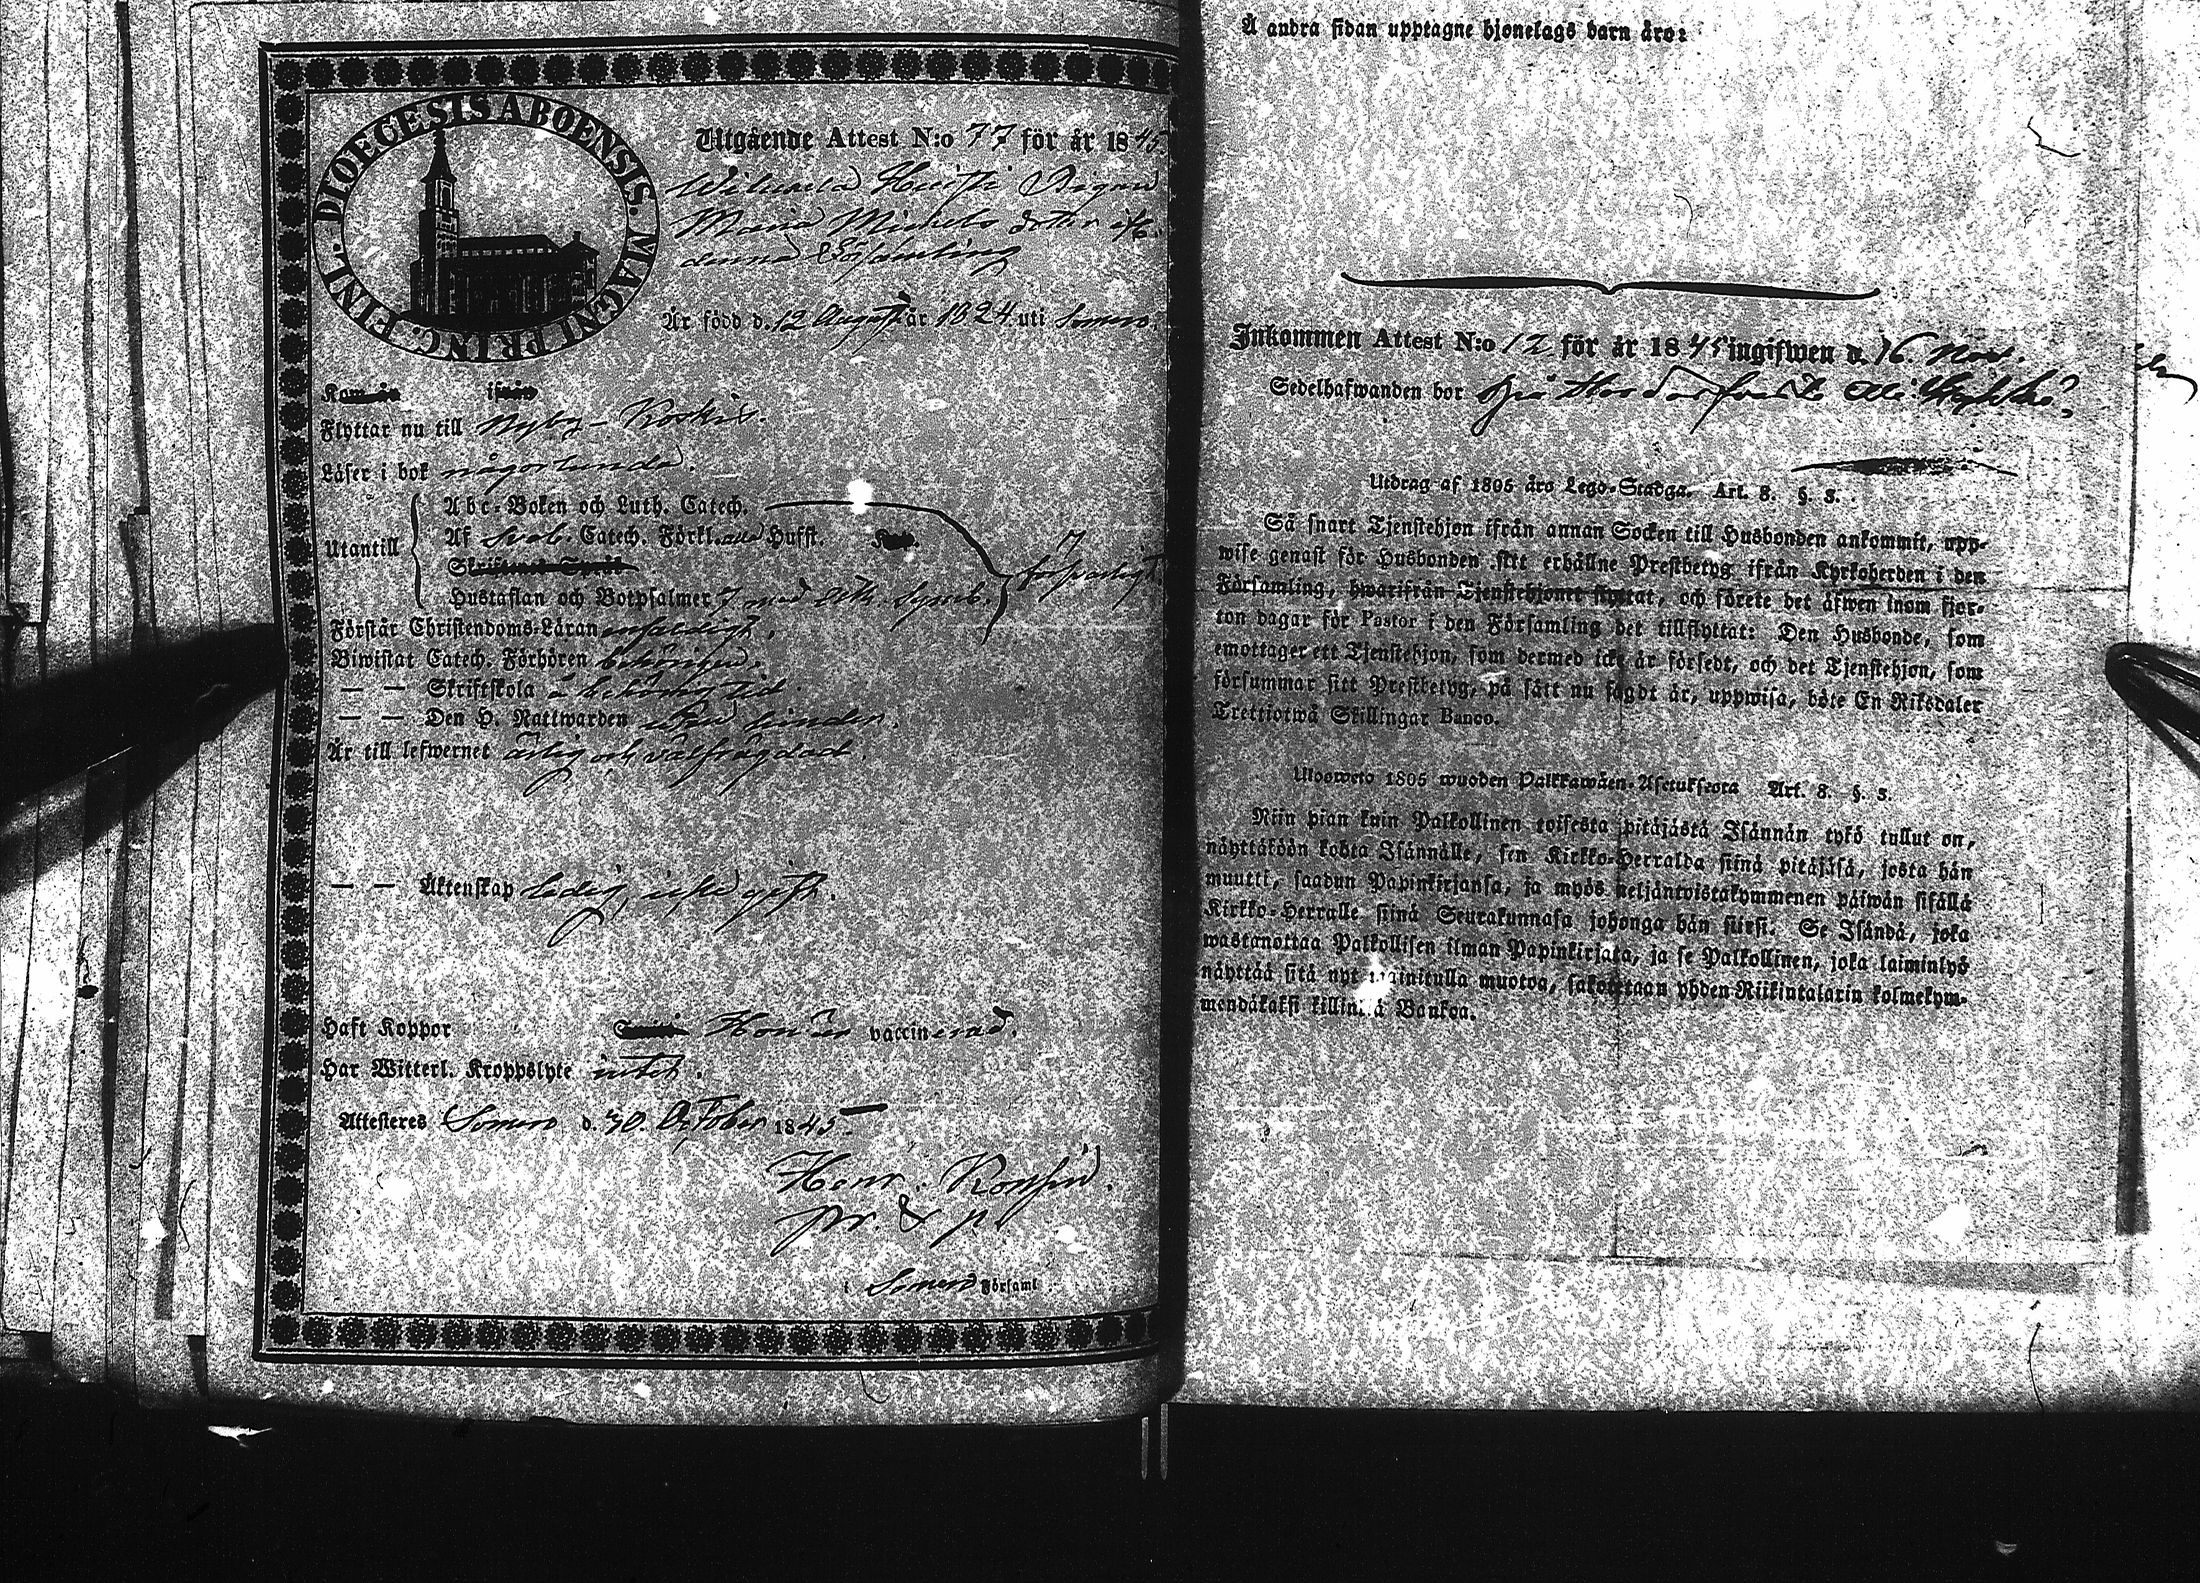 DIOECESIS ABOENSIS. MAGNI PRINC. FINL.
Utgående Attest N:o 77 för år 1845
Pigan
Maria Michels dotter ifr.
denna Församling
Är född d. 12 Augusti år 1824 uti Somero.
Kom år ifrån
Flyttar nu till Nyby-Koskis.
Läser i bok någorlunda.
Utantill
Abc-Boken och Luth. Catech.
Af Sveb. Catech. Förkl. alla Hufst.
Skriftenes Språk
Hustaflan och Botpsalmer 7 med Ath. Symb.
försvarligt
Förstår Christendoms-Läran enfaldigt.
Biwistat Catech. Förhören behörigen.
— — Skriftskola å behörig tid.
— — Den H. Nattwarden utan hinder.
Är till lefwernet ärlig och välfrägdad.
— — Äktenskap ledig, icke gift.
Haft Koppor Hon är vaccinerad.
Har Witterl. Kroppslyte intet.
Attesteres Somero d. 30. October 1845.
Henr.
pr. & p.
i Somero Församl.
Å andra sidan upptagne hjonelags barn äro:
Inkommen Attest N:o 12 för år 1845 ingifwen d. 16. Nov.
Sedelhafwanden bor
Utdrag af 1805 års Lego-Stadga. Art. 8. §. 3.
Så snart Tjenstehjon ifrån annan Socken till Husbonden ankommit, upp-
wise genast för Husbonden sitt erhållne Prestbetyg ifrån Kyrkoherden i den
Församling, hwarifrån Tjenstehjonet flyttat, och förete det äfwen inom fjor-
ton dagar för Pastor i den Församling det tillflyttat: Den Husbonde, som
emottager ett Tjenstehjon, som dermed icke är försedt, och det Tjenstehjon, som
försummar sitt Prestbetyg, på sätt nu sagdt är, uppwisa, böte En Riksdaler
Trettiotwå Skillingar Banco.
Ulosweto 1805 wuoden Palkkawäen-Asetuksesta Art. 8. §. 3.
Niin pian kuin Palkollinen toisesta pitäjästä Isännän tykö tullut on,
näyttäköön kohta Isännälle, sen Kirkko-Herralda siinä pitäjäsä, josta hän
muutti, saadun Papinkirjansa, ja myös neljäntoistakymmenen päiwän sisällä
Kirkko-Herralle siinä Seurakunnasa johonga hän siirsi. Se Isändä, joka
wastanottaa Palkollisen ilman Papinkirjata, ja se Palkollinen, joka laiminlyö
näyttää sitä nyt mainitulla muotoa, sakotetaan yhden Riikintalarin kolmekym-
mendäkaksi killingiä Bankoa.